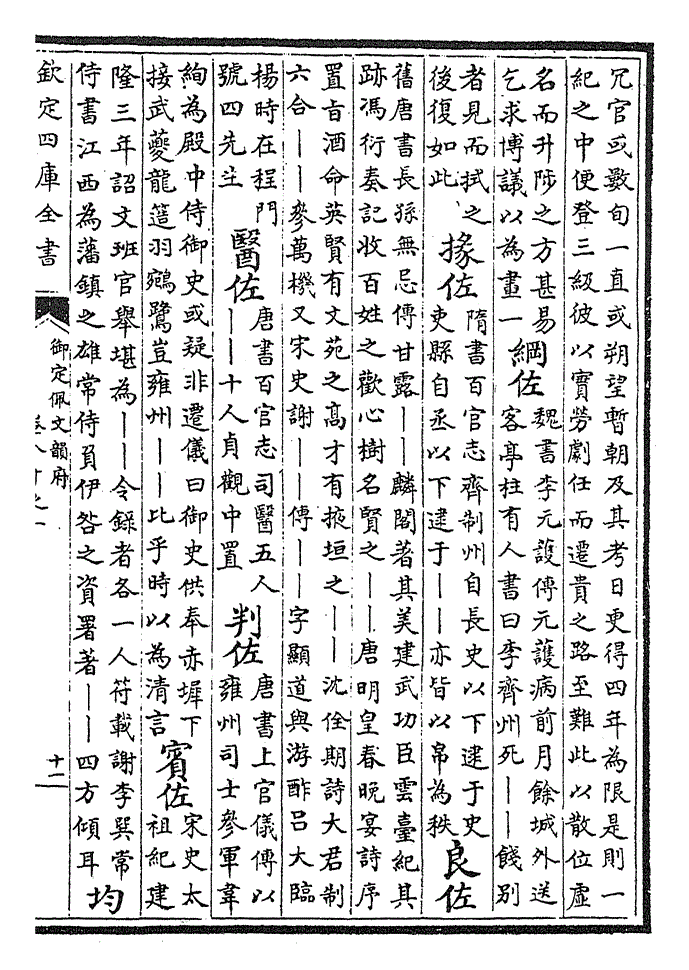 冗官或數旬一直或朔望暫朝及其考日更得四年為限是則一
紀之中便登三級彼以實勞劇任而遷貴之路至難此以散位虛
名而升陟之方甚易
乞求博議以為畫一
綱佐
魏書李元護傳元護病前月餘城外送
客亭柱有人書曰李齊州死——餞別
者見而拭之
後復如此
掾佐
隋書百官志齊制州自長史以下逮于史
吏縣自丞以下逮于——亦皆以帛為秩
良佐
舊唐書長孫無忌傳甘露——麟閣著其美建武功臣雲臺紀其
跡馮衍奏記收百姓之歡心樹名賢之——唐明皇春晚宴詩序
置㫖酒命英賢有文苑之高才有掖垣之——沈佺期詩大君制
六合——參萬機又宋史謝——傳——字顯道與游酢吕大臨
楊時在程門
號四先生
醫佐
唐書百官志司醫五人
——十人貞觀中置
判佐
唐書上官儀傳以
雍州司士參軍韋
絢為殿中侍御史或疑非遷儀曰御史供奉赤墀下
接武夔龍簉羽鵷鷺豈雍州——比乎時以為清言
賓佐
宋史太
祖紀建
隆三年詔文班官舉堪為——令録者各一人符載謝李巽常
侍書江西為藩鎮之雄常侍負伊咎之資署著——四方傾耳
均
欽定四庫全書
御定佩文韻府
卷八十之一
十二